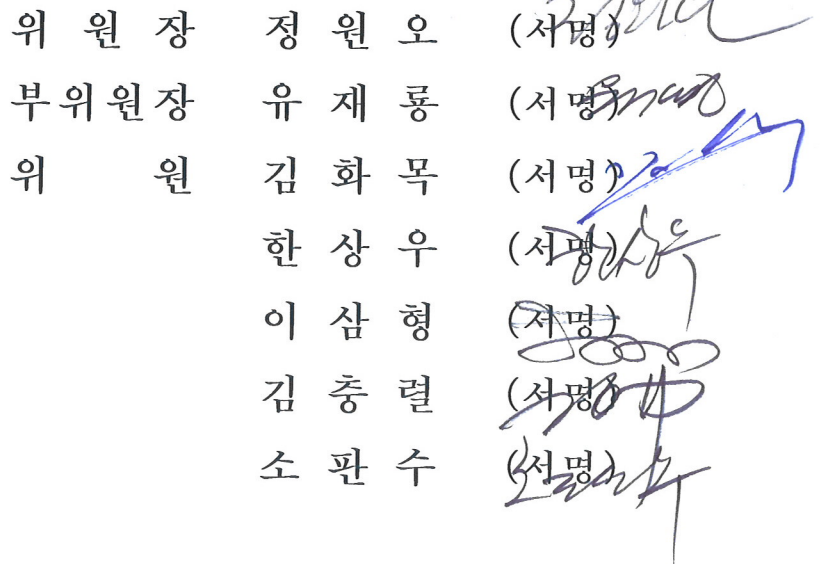 위 원 장 정 원 오 (서명)
부위원장 유 재 룡 (서명)
위 원 김 화 목 (서명)
한 상 우 (서명)
이 삼 형 (서명)
김 충 렬 (서명)
소 판 수 (서명)